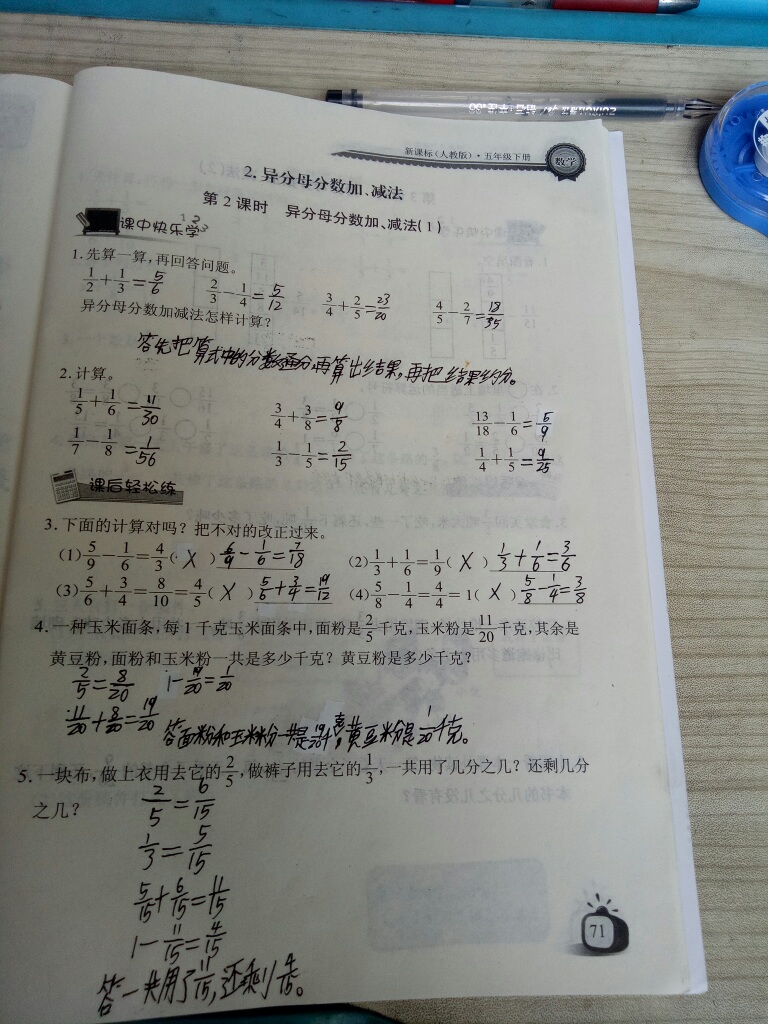 新课标(人教版)·五年级下册 数学
2. 异分母分数加、减法
第2课时 异分母分数加、减法(1)
课中快乐学
1. 先算一算,再回答问题。
1/2+1/3=5/6 2/3-1/4=5/12 3/4+2/5=23/20 4/5-2/7=18/35
异分母分数加减法怎样计算?
答先把算式中的分数通分再算出结果,再把结果约分。
2. 计算。
1/5+1/6=11/30 3/4+3/8=9/8 13/18-1/6=5/9
1/7-1/8=1/56 1/3-1/5=2/15 1/4+1/5=9/25
课后轻松练
3. 下面的计算对吗?把不对的改正过来。
(1) 5/9-1/6=4/3( X ) 6/9-1/6=7/18 (2) 1/3+1/6=1/9( X ) 1/3+1/6=3/6
(3) 5/6+3/4=8/10=4/5( X ) 5/6+3/4=19/12 (4) 5/8-1/4=4/4=1( X ) 5/8-1/4=3/8
4. 一种玉米面条,每1千克玉米面条中,面粉是2/5千克,玉米粉是11/20千克,其余是
黄豆粉,面粉和玉米粉一共是多少千克?黄豆粉是多少千克?
2/5=8/20 1-19/20=1/20
11/20+8/20=19/20
答面粉和玉米粉一共是19/20千克,黄豆粉是1/20千克。
5. 一块布,做上衣用去它的2/5,做裤子用去它的1/3,一共用了几分之几?还剩几分
之几?
2/5=6/15
1/3=5/15
5/15+6/15=11/15
1-11/15=4/15
答一共用了11/15,还剩4/15。
71